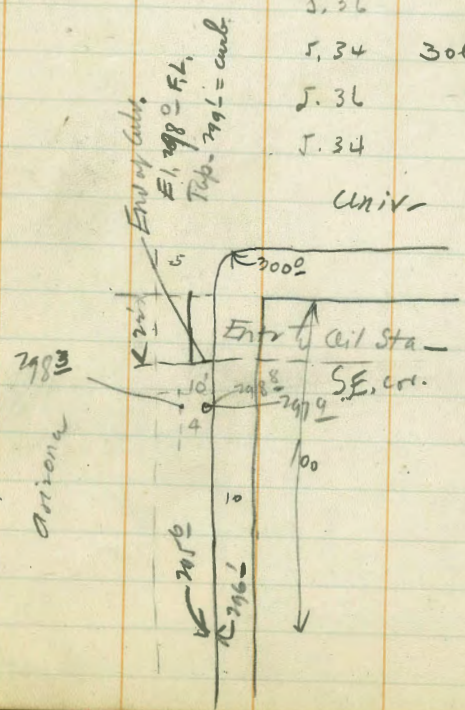 5.36
5.34
306
5.36
5.34
Univ-
End of Culv.
El. 298⁰ F.L.
Top- 299¹ = curb
5
300⁰
Entr to Oil Sta
S.E. Cor.
298³
10
298⁸
297⁹
4
100
10
Arizona
295⁶
296¹